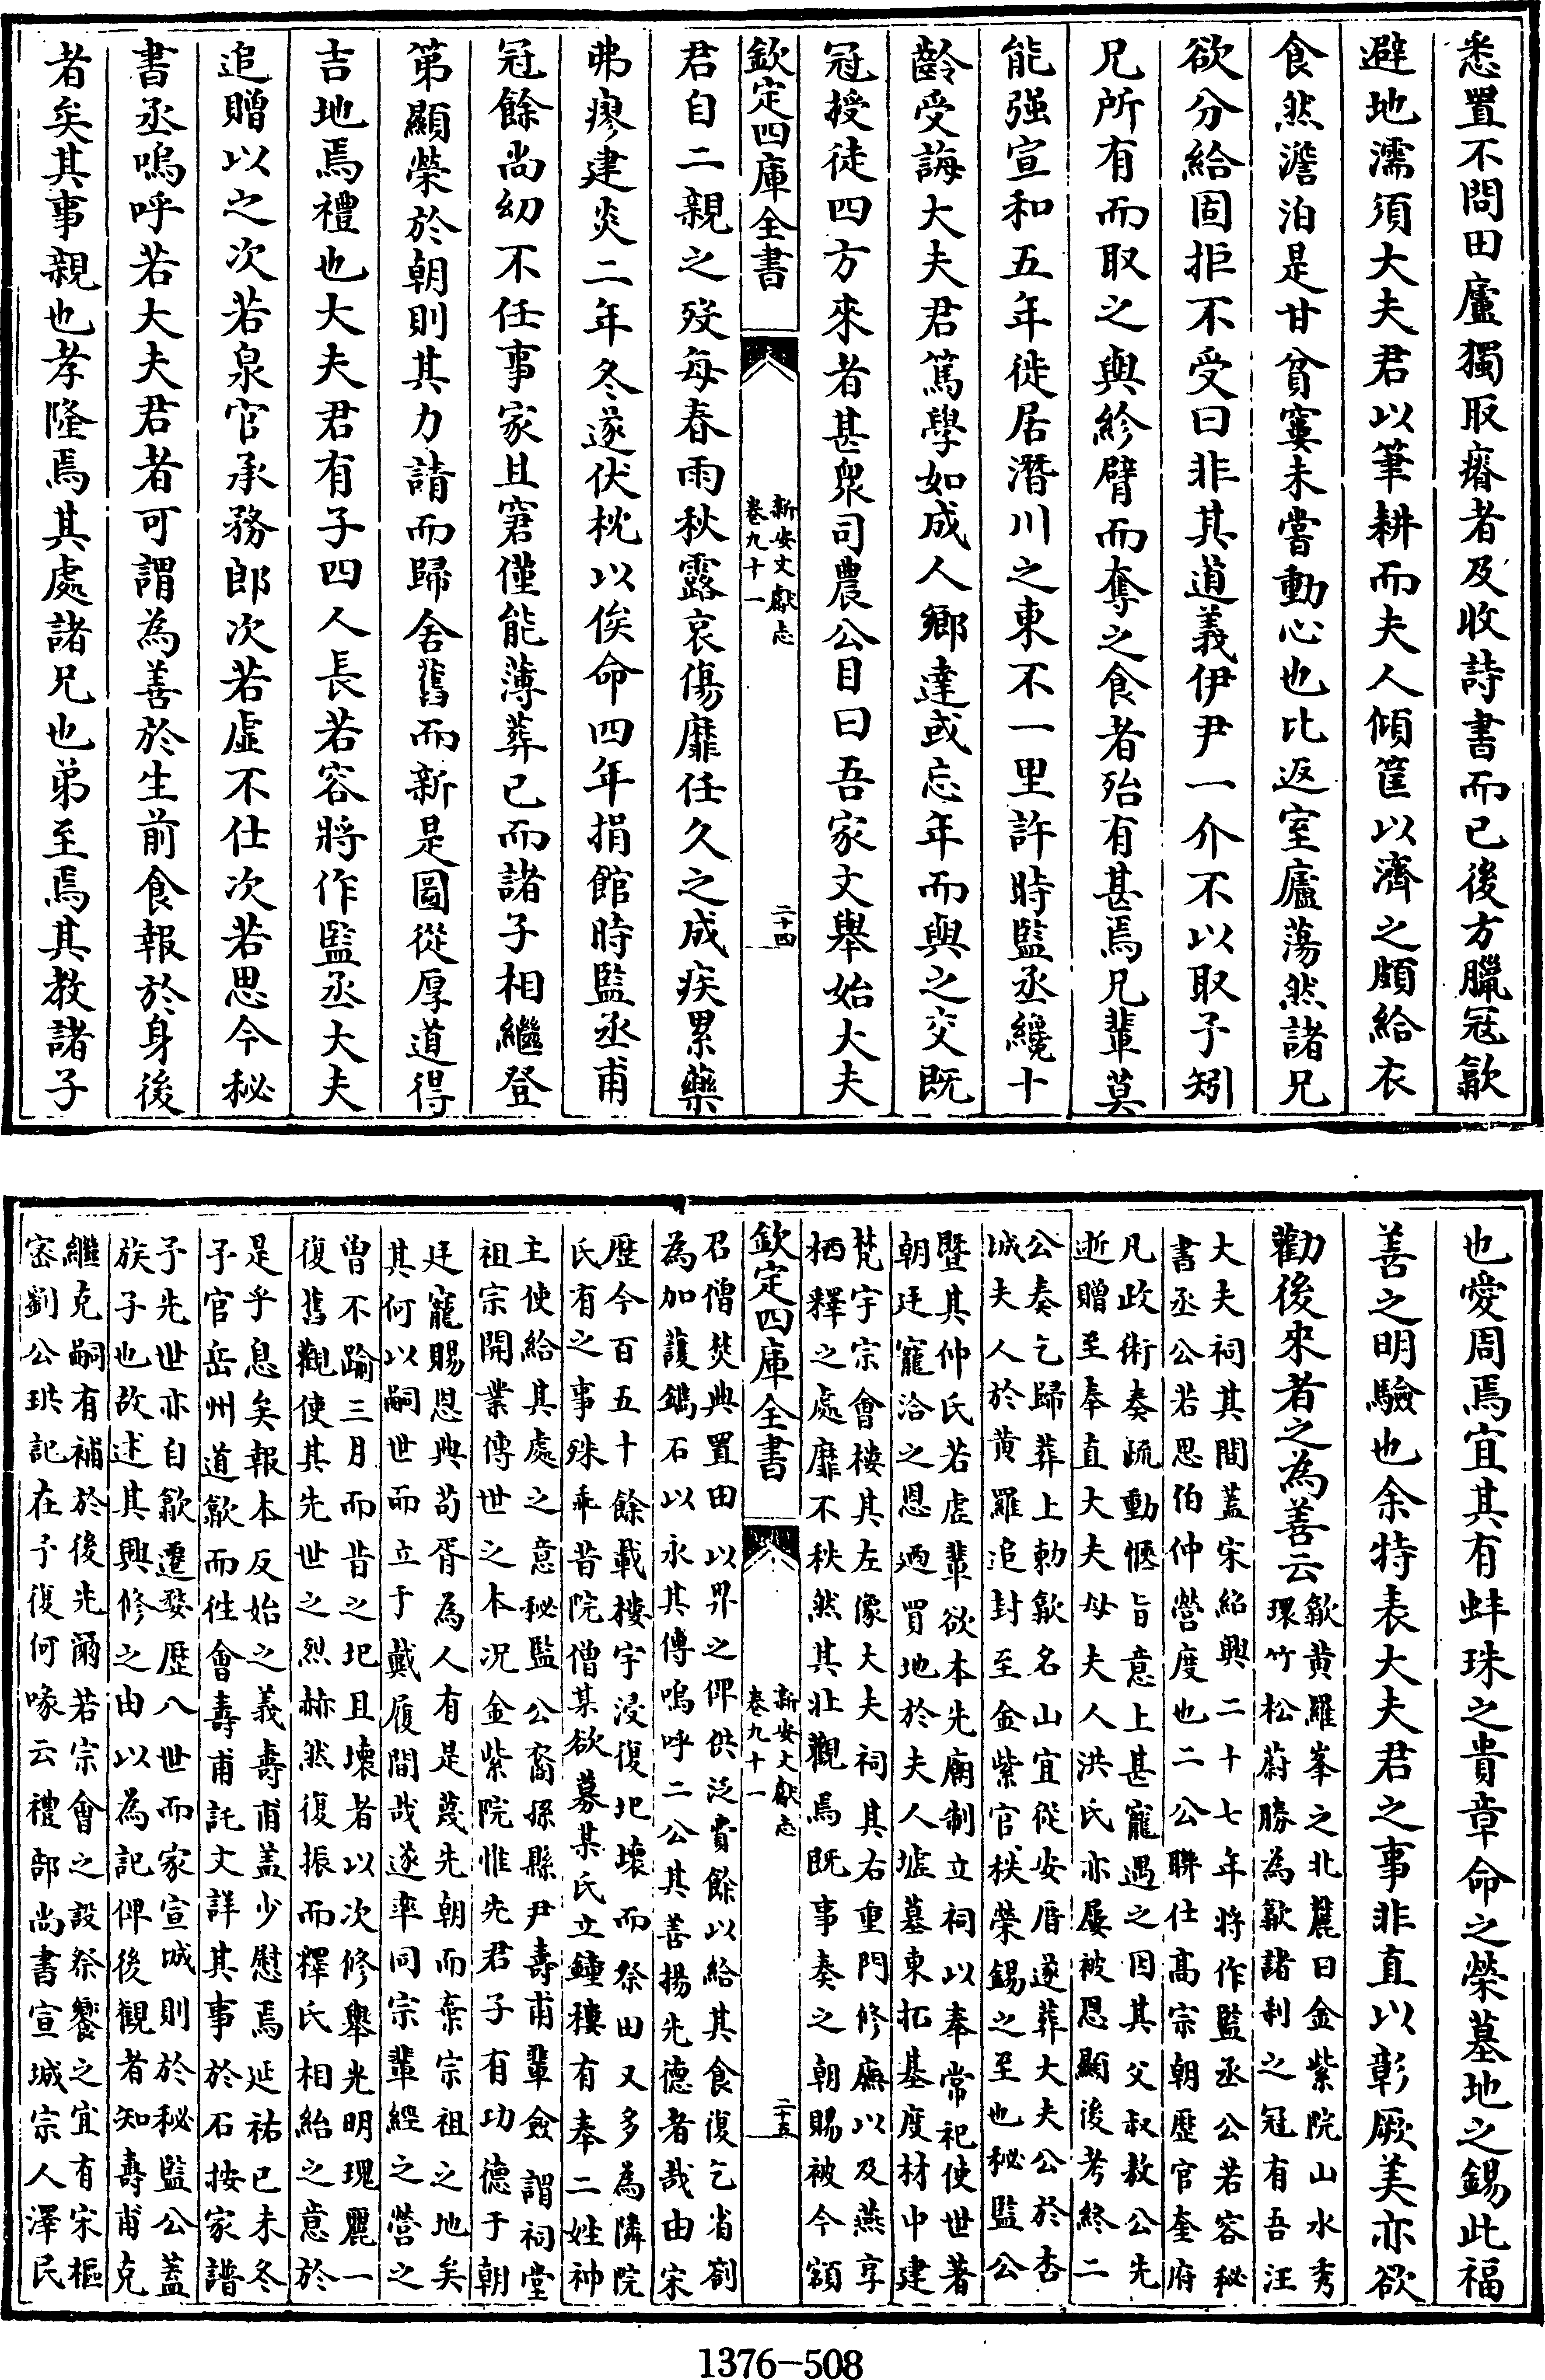 悉置不問田廬獨取瘠者及收詩書而已後方臘冦歙
避地濡須大夫君以筆耕而夫人傾筐以濟之頗給衣
食然澹泊是甘貧窶未嘗動心也比返室廬蕩然諸兄
欲分給固拒不受曰非其道義伊尹一介不以取予矧
兄所有而取之與紾臂而奪之食者殆有甚焉兄輩莫
能强宣和五年徙居潛川之東不一里許時監丞纔十
齡受誨大夫君篤學如成人鄉達或忘年而與之交既
冠授徒四方來者甚衆司農公目曰吾家文舉始大夫
欽定四庫全書
新安文獻志
卷九十一
二十四
君自二親之殁每春雨秋露哀傷靡任久之成疾累藥
弗瘳建炎二年冬遂伏枕以俟命四年捐館時監丞甫
冠餘尚幼不任事家且窘僅能薄葬已而諸子相繼登
第顯榮於朝則其力請而歸舍舊而新是圖從厚道得
吉地焉禮也大夫君有子四人長若容將作監丞大夫
追贈以之次若泉官承務郎次若虚不仕次若思今秘
書丞嗚呼若大夫君者可謂為善於生前食報於身後
者矣其事親也孝隆焉其處諸兄也弟至焉其教諸子
也愛周焉宜其有蚌珠之貴章命之榮墓地之錫此福
善之明驗也余特表大夫君之事非直以彰厥美亦欲
勸後來者之為善云
歙黄羅峯之北麓曰金紫院山水秀
環竹松蔚勝為歙諸刹之冠有吾汪
大夫祠其間蓋宋紹興二十七年將作監丞公若容秘
書丞公若思伯仲營度也二公聨仕髙宗朝歴官奎府
凡政術奏疏動愜旨意上甚寵遇之因其父叔敖公先
逝贈至奉直大夫母夫人洪氏亦屢被恩顯後考終二
公奏乞歸葬上勅歙名山宜從安厝遂葬大夫公於杏
城夫人於黄羅追封至金紫官秩榮錫之至也秘監公
暨其仲氏若虚輩欲本先廟制立祠以奉常祀使世著
朝廷寵洽之恩迺買地於夫人墟墓東拓基度材中建
梵宇宗會樓其左像大夫祠其右重門修廡以及燕享
栖釋之處靡不秩然其壯觀焉既事奏之朝賜被今額
欽定四庫全書
新安文獻志
卷九十一
二十五
召僧焚典置田以畀之俾供泛費餘以給其食復乞省劄
為加䕶鐫石以永其傳嗚呼二公其善揚先德者哉由宋
歴今百五十餘載樓宇浸復圮壞而祭田又多為隣院
氏有之事殊乖昔院僧某欲募某氏立鐘樓有奉二姓神
主使給其處之意秘監公裔孫縣尹壽甫輩僉謂祠堂
祖宗開業傳世之本况金紫院惟先君子有功德于朝
廷寵賜恩典茍胥為人有是蔑先朝而棄宗祖之地矣
其何以嗣世而立于戴履間哉遂率同宗輩經之營之
曾不踰三月而昔之圮且壞者以次修舉光明瑰麗一
復舊觀使其先世之烈赫然復振而釋氏相紿之意於
是乎息矣報本反始之義壽甫蓋少慰焉延祐己未冬
予官岳州道歙而徃會壽甫託文詳其事於石按家譜
予先世亦自歙遷婺歴八世而家宣城則於秘監公蓋
族子也故述其興修之由以為記俾後觀者知壽甫克
繼克嗣有補於後先爾若宗會之設祭饗之宜有宋樞
宻劉公珙記在予復何喙云禮部尚書宣城宗人澤民
1376-508